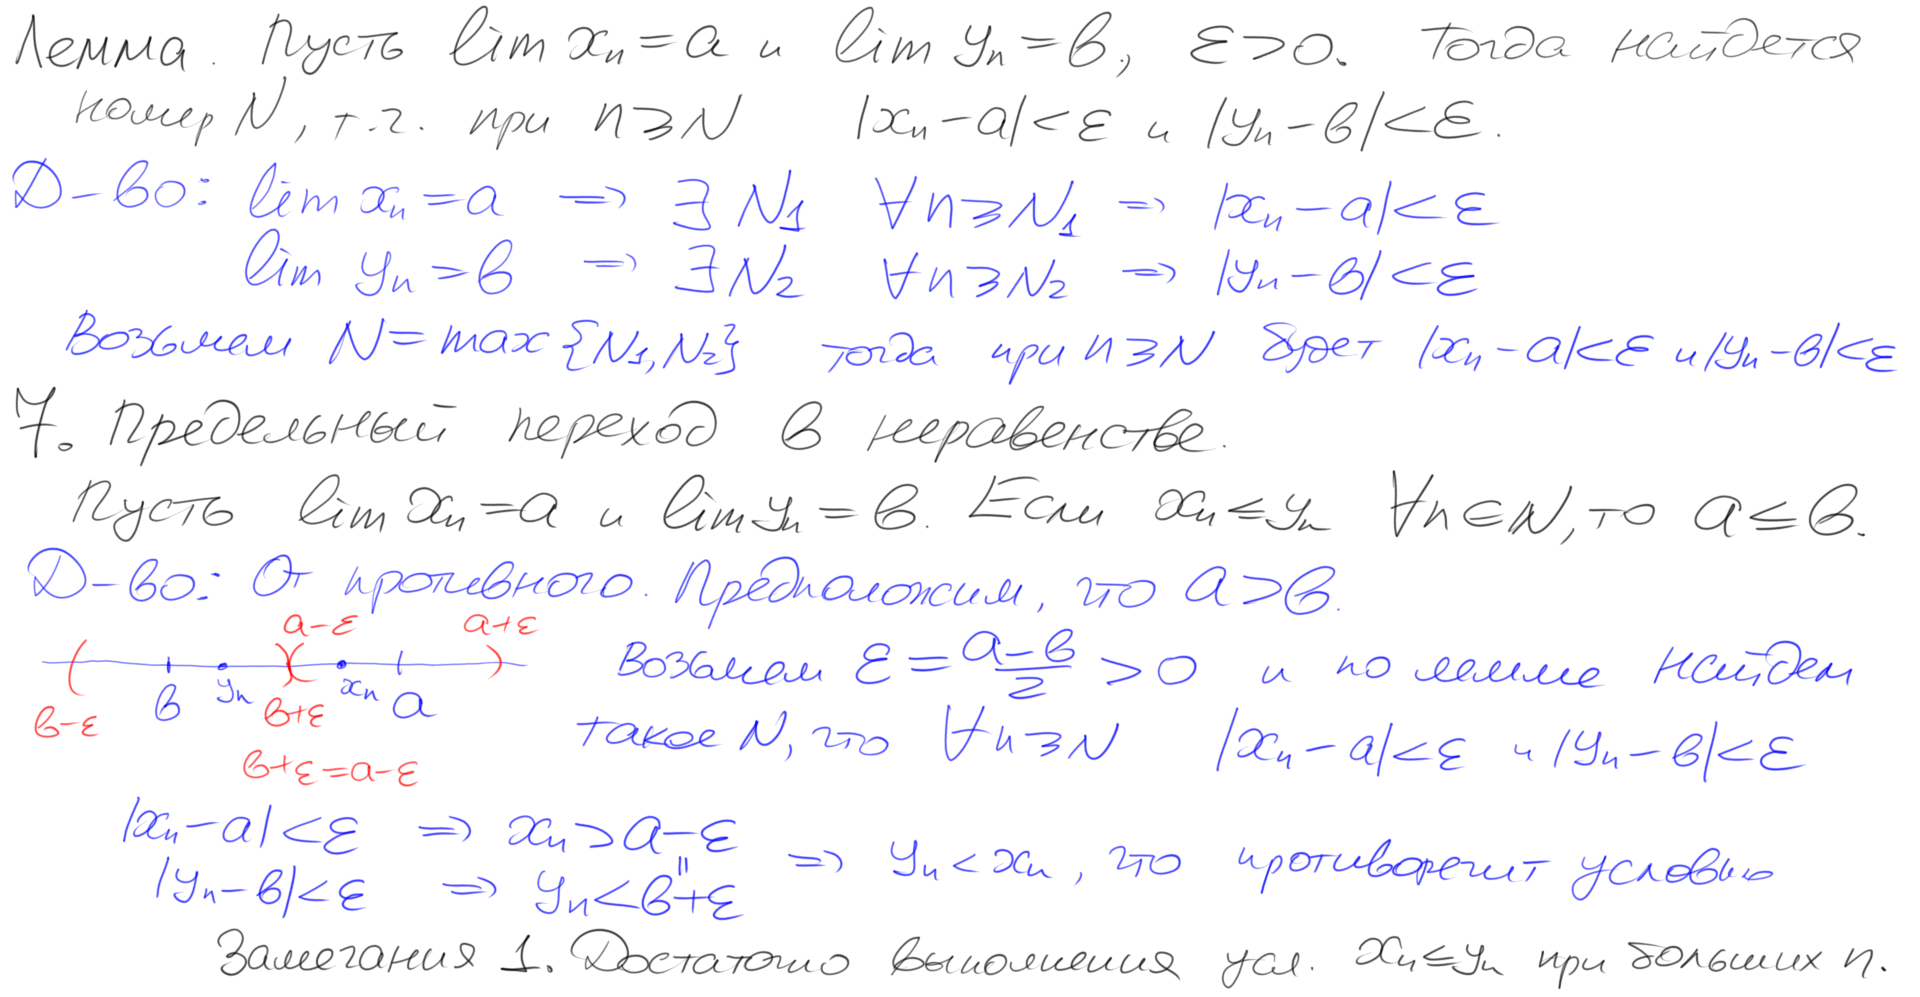 Лемма. Пусть lim xₙ = a и lim yₙ = b, ε > 0. Тогда найдется
номер N, т.ч. при n ⩾ N |xₙ − a| < ε и |yₙ − b| < ε.
Д-во: lim xₙ = a ⇒ ∃ N₁ ∀n ⩾ N₁ ⇒ |xₙ − a| < ε
lim yₙ = b ⇒ ∃ N₂ ∀n ⩾ N₂ ⇒ |yₙ − b| < ε
Возьмем N = max {N₁, N₂} тогда при n ⩾ N будет |xₙ − a| < ε и |yₙ − b| < ε
7. Предельный переход в неравенстве.
Пусть lim xₙ = a и lim yₙ = b. Если xₙ ≤ yₙ ∀n ∈ N, то a ≤ b.
Д-во: От противного. Предположим, что a > b.
a−ε a+ε
b yₙ xₙ a
b−ε b+ε
b+ε = a−ε
Возьмем ε = (a−b)/2 > 0 и по лемме найдем
такое N, что ∀n ⩾ N |xₙ − a| < ε и |yₙ − b| < ε
|xₙ − a| < ε ⇒ xₙ > a − ε
||
⇒ yₙ < xₙ, что противоречит условию
|yₙ − b| < ε ⇒ yₙ < b + ε
Замечания 1. Достаточно выполнения усл. xₙ ≤ yₙ при больших n.